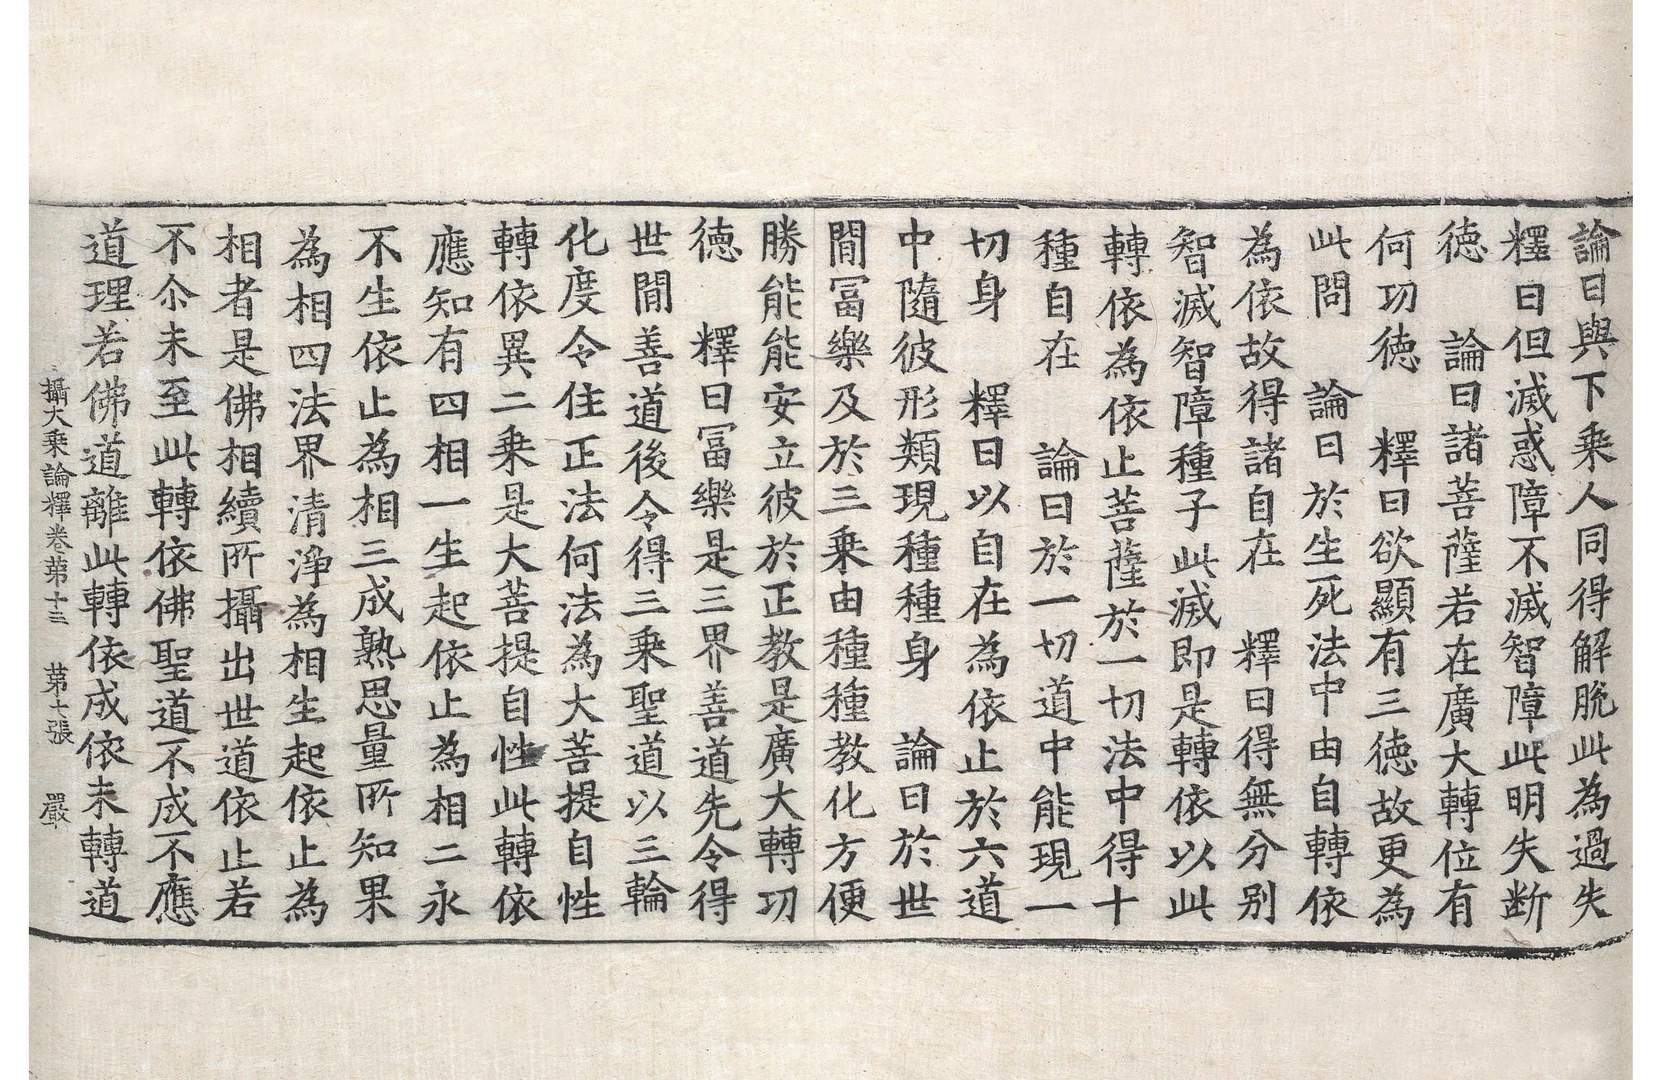 論曰與下乗人同得解脫此為過失
釋曰但滅惑障不滅智障此明失断
徳 論曰諸菩薩若在廣大轉位有
何功徳 釋曰欲顯有三徳故更為
此問 論曰於生死法中由自轉依
為依故得諸自在 釋曰得無分别
智滅智障種子此滅即是轉依以此
轉依為依止菩薩於一切法中得十
種自在 論曰於一切道中能現一
切身 釋曰以自在為依止於六道
中隨彼形類現種種身 論曰於世
間冨樂及於三乗由種種教化方便
勝能能安立彼於正教是廣大轉功
徳 釋曰冨樂是三界善道先令得
世間善道後令得三乗聖道以三輪
化度令住正法何法為大菩提自性
轉依異二乗是大菩提自性此轉依
應知有四相一生起依止為相二永
不生依止為相三成熟思量所知果
為相四法界清淨為相生起依止為
相者是佛相續所攝出世道依止若
不尒未至此轉依佛聖道不成不應
道理若佛道離此轉依成依未轉道
攝大乗論釋卷苐十三 苐七張 嚴